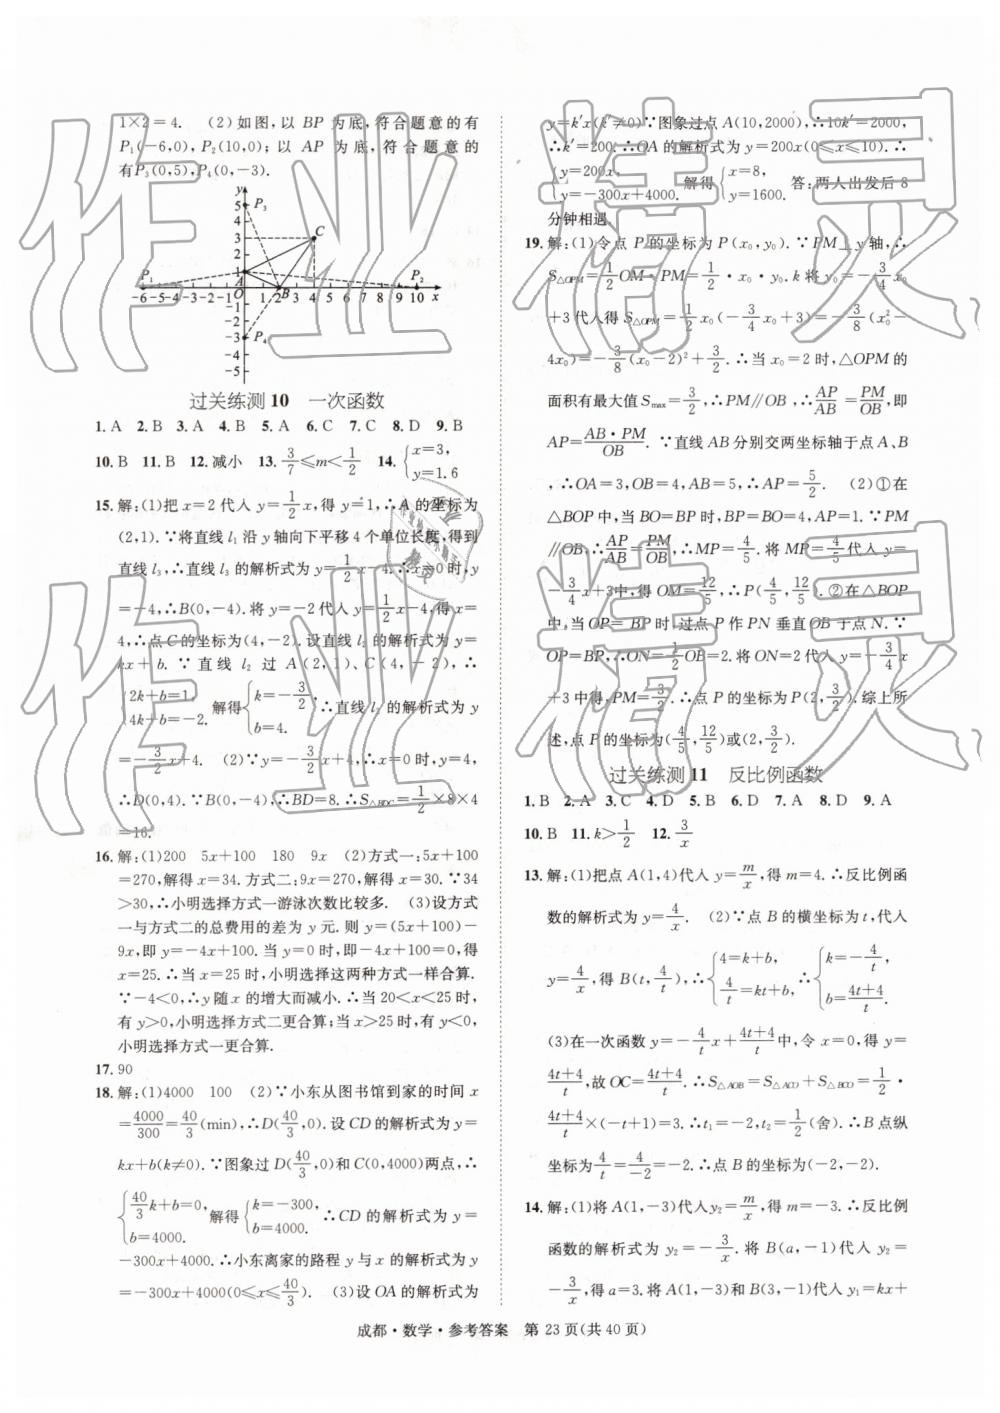 1×2=4. (2)如图,以 BP 为底,符合题意的有
P₁(-6,0),P₂(10,0);以 AP 为底,符合题意的
有P₃(0,5),P₄(0,-3).
过关练测 10 一次函数
1. A 2. B 3. A 4. B 5. A 6. C 7. C 8. D 9. B
10. B 11. B 12. 减小 13. 3/7≤m<1/2 14. {x=3, y=1.6
15. 解:(1)把 x=2 代入 y=1/2x,得 y=1,∴A 的坐标为
(2,1).∵将直线 l₁ 沿 y 轴向下平移 4 个单位长度,得到
直线 l₃,∴直线 l₃ 的解析式为 y=1/2x-4.∴x=0 时,y
=-4,∴B(0,-4).将 y=-2 代入 y=1/2x-4,得 x=
4,∴点 C 的坐标为(4,-2).设直线 l₂ 的解析式为 y=
kx+b.∵直线 l₂ 过 A(2,1)、C(4,-2),∴
{2k+b=1, 4k+b=-2. 解得 {k=-3/2, b=4. ∴直线 l₂ 的解析式为 y
=-3/2x+4. (2)∵y=-3/2x+4,∴x=0 时,y=4,
∴D(0,4).∵B(0,-4),∴BD=8.∴S△BDC=1/2×8×4
=16.
16. 解:(1)200 5x+100 180 9x (2)方式一:5x+100
=270,解得 x=34.方式二:9x=270,解得 x=30.∵34
>30,∴小明选择方式一游泳次数比较多. (3)设方式
一与方式二的总费用的差为 y 元.则 y=(5x+100)-
9x,即 y=-4x+100.当 y=0 时,即-4x+100=0,得
x=25.∴当 x=25 时,小明选择这两种方式一样合算.
∵-4<0,∴y 随 x 的增大而减小.∴当 20<x<25 时,
有 y>0,小明选择方式二更合算;当 x>25 时,有 y<0,
小明选择方式一更合算.
17. 90
18. 解:(1)4000 100 (2)∵小东从图书馆到家的时间 x
=4000/300=40/3(min),∴D(40/3,0).设 CD 的解析式为 y=
kx+b(k≠0).∵图象过 D(40/3,0)和 C(0,4000)两点,∴
{40/3k+b=0, b=4000. 解得 {k=-300, b=4000. ∴CD 的解析式为 y=
-300x+4000.∴小东离家的路程 y 与 x 的解析式为 y
=-300x+4000(0≤x≤40/3). (3)设 OA 的解析式为
y=k′x(k′≠0)∵图象过点 A(10,2000),∴10k′=2000,
∴k′=200.∴OA 的解析式为 y=200x(0≤x≤10).∴
{y=200x, y=-300x+4000. 解得 {x=8, y=1600. 答:两人出发后 8
分钟相遇.
19. 解:(1)令点 P 的坐标为 P(x₀,y₀).∵PM⊥y 轴,∴
S△OPM=1/2OM·PM=1/2·x₀·y₀.k 将 y₀=-3/4x₀
+3代入得 S△OPM=1/2x₀(-3/4x₀+3)=-3/8(x₀²-
4x₀)=-3/8(x₀-2)²+3/2.∴当 x₀=2 时,△OPM 的
面积有最大值 Smax=3/2,∴PM∥OB,∴AP/AB=PM/OB,即
AP=AB·PM/OB.∵直线 AB 分别交两坐标轴于点 A、B
,∴OA=3,OB=4,AB=5,∴AP=5/2. (2)①在
△BOP 中,当 BO=BP 时,BP=BO=4,AP=1.∵PM
∥OB,∴AP/AB=PM/OB,∴MP=4/5.将 MP=4/5代入 y=
-3/4x+3中,得 OM=12/5,∴P(4/5,12/5).②在△BOP
中,当 OP=BP 时,过点 P 作 PN 垂直 OB 于点 N.∵
OP=BP,∴ON=1/2OB=2.将 ON=2 代入 y=-3/4x
+3 中得,PM=3/2,∴点 P 的坐标为 P(2,3/2).综上所
述,点 P 的坐标为(4/5,12/5)或(2,3/2).
过关练测 11 反比例函数
1. B 2. A 3. C 4. D 5. B 6. D 7. A 8. D 9. A
10. B 11. k>1/2 12. 3/x
13. 解:(1)把点 A(1,4)代入 y=m/x,得 m=4.∴反比例函
数的解析式为 y=4/x. (2)∵点 B 的横坐标为 t,代入
y=4/x,得 B(t,4/t),∴{4=k+b, 4/t=kt+b, ∴{k=-4/t, b=4t+4/t.
(3)在一次函数 y=-4/tx+4t+4/t中,令 x=0,得 y=
4t+4/t,故 OC=4t+4/t.∴S△AOB=S△ACO+S△BCO=1/2·
4t+4/t×(-t+1)=3.∴t₁=-2,t₂=1/2(舍).∴B 点纵
坐标为4/t=4/-2=-2.∴点 B 的坐标为(-2,-2).
14. 解:(1)将 A(1,-3)代入 y₂=m/x,得 m=-3.∴反比例
函数的解析式为 y₂=-3/x.将 B(a,-1)代入 y₂=
-3/x,得 a=3.将 A(1,-3)和 B(3,-1)代入 y₁=kx+
成都·数学·参考答案 第 23 页(共 40 页)